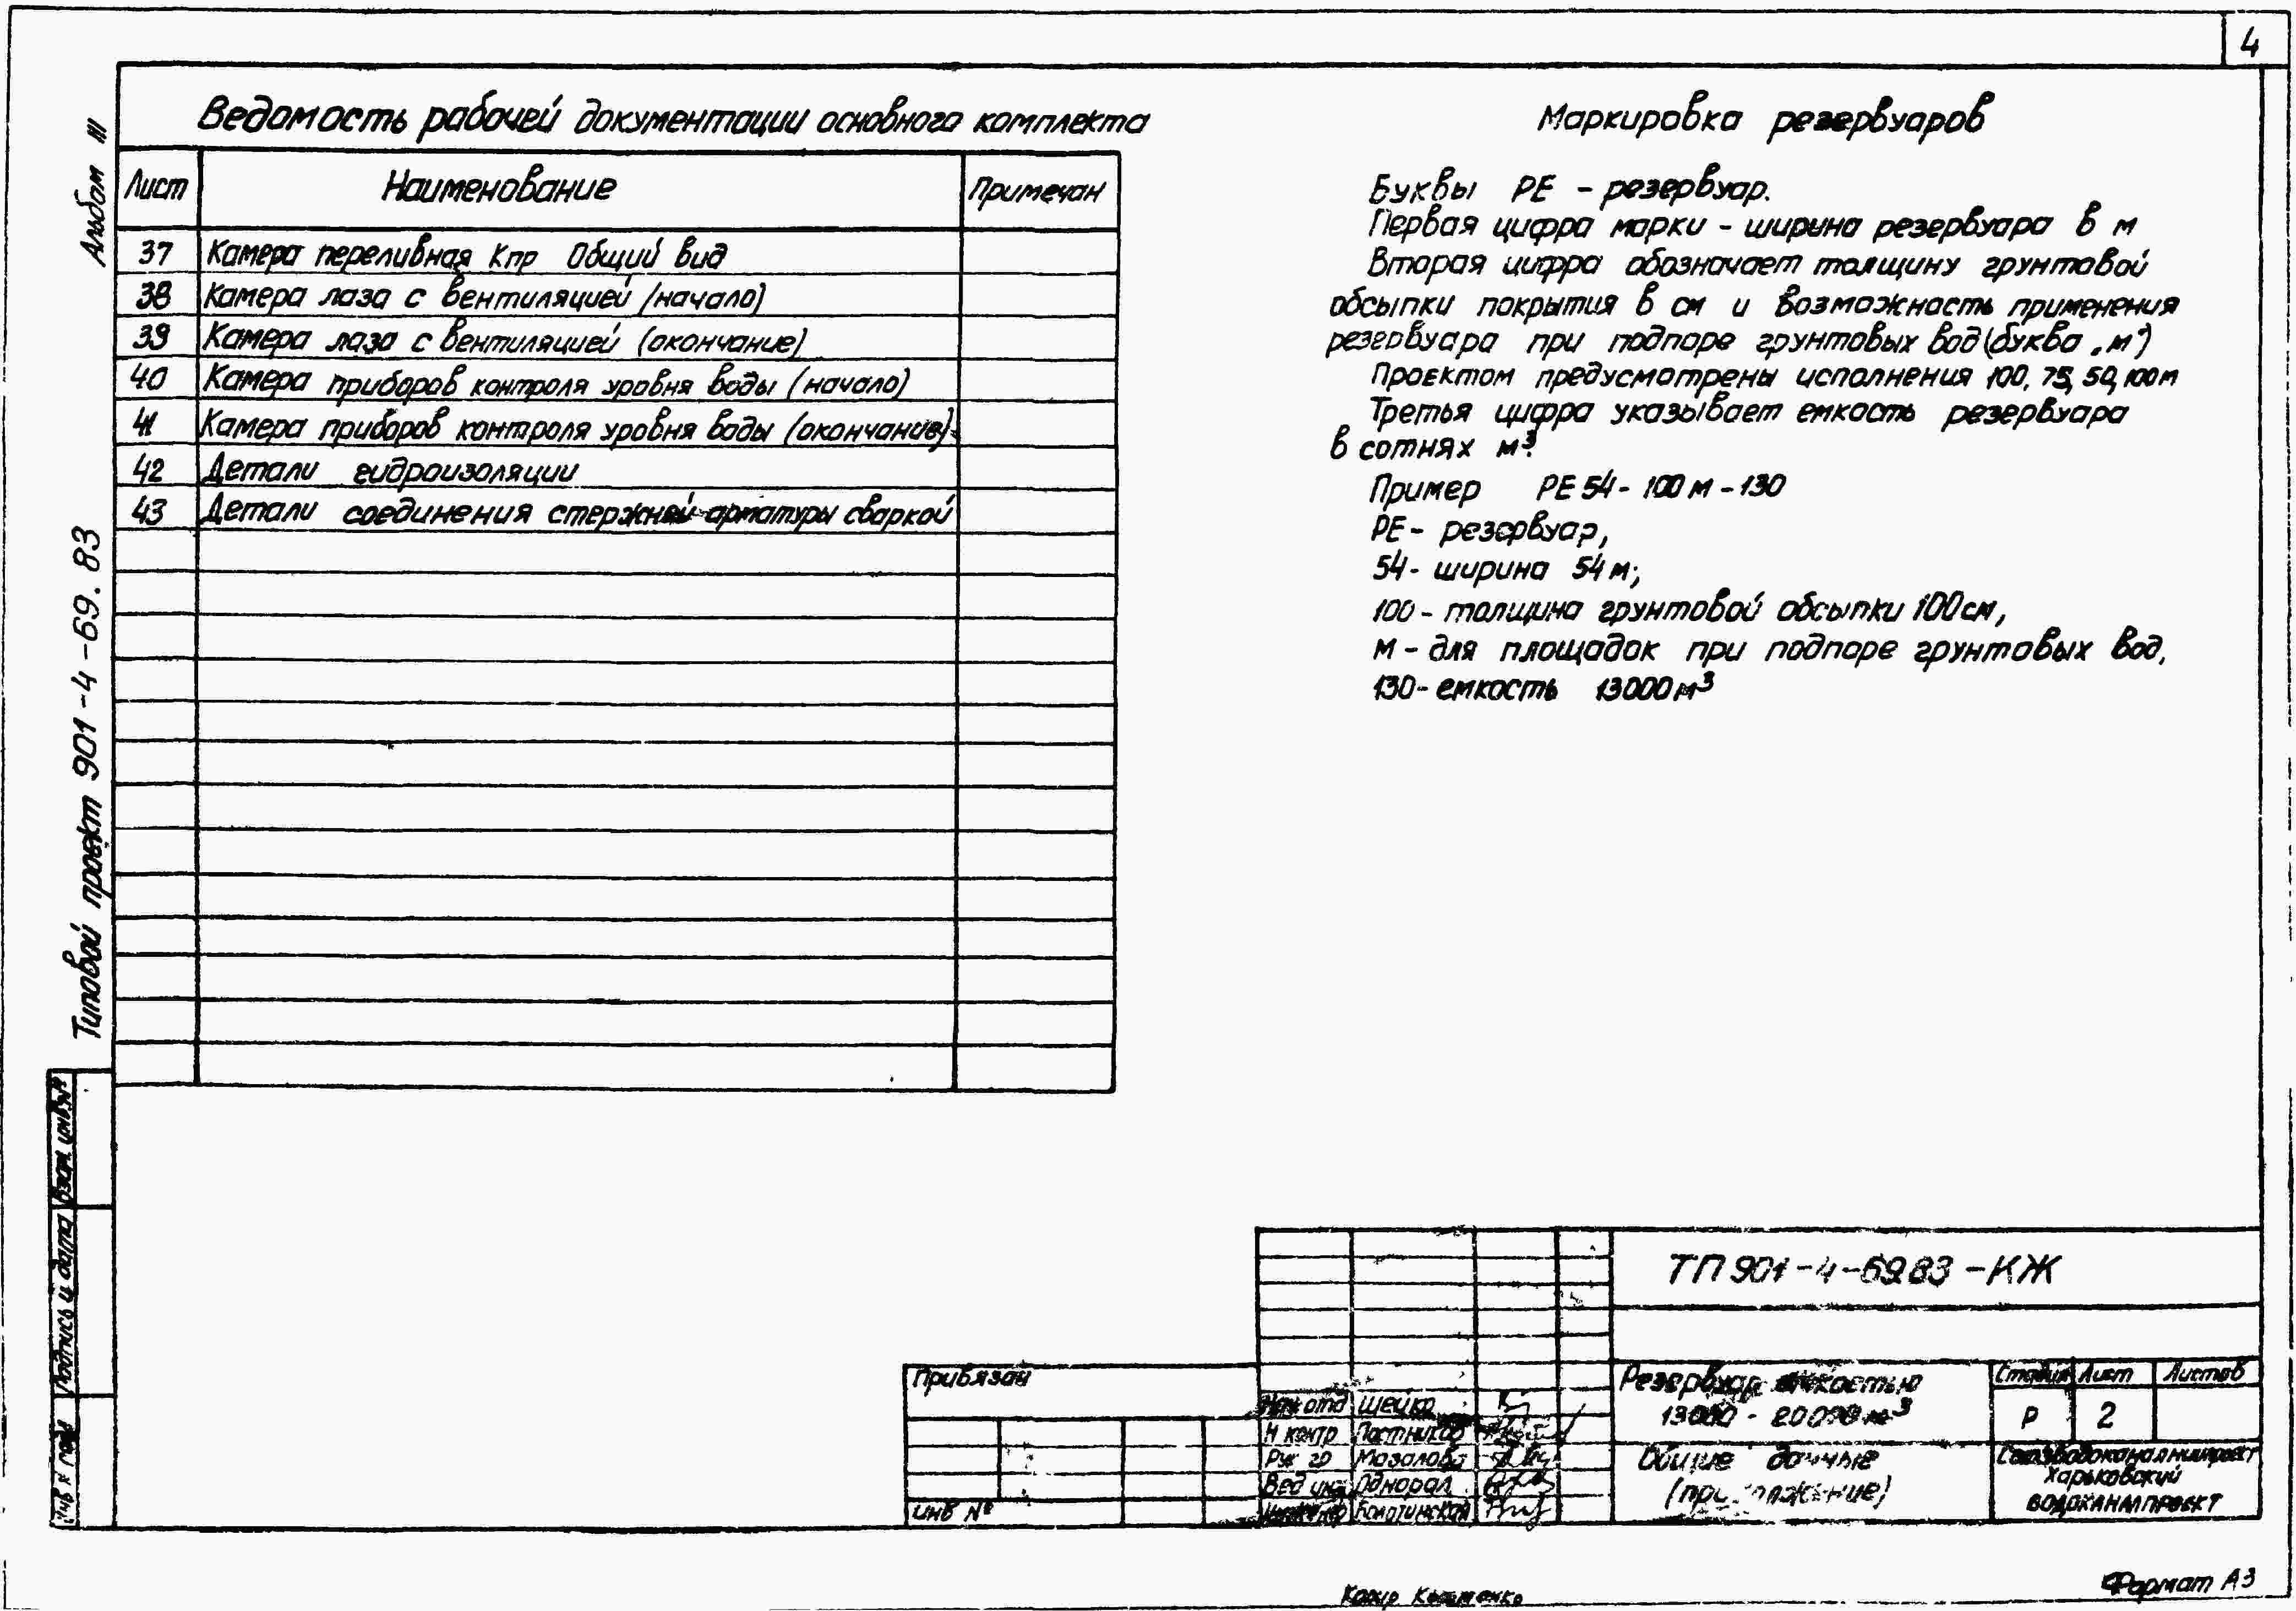 4
Альбом III
Типовой проект 901-4-69.83
Ведомость рабочей документации основного комплекта
Лист Наименование Примечан
37 Камера переливная Кпр Общий вид
38 Камера лаза с вентиляцией (начало)
39 Камера лаза с вентиляцией (окончание)
40 Камера приборов контроля уровня воды (начало)
41 Камера приборов контроля уровня воды (окончание)
42 Детали гидроизоляции
43 Детали соединения стержней арматуры сваркой
Маркировка резервуаров
Буквы РЕ - резервуар.
Первая цифра марки - ширина резервуара в м
Вторая цифра обозначает толщину грунтовой
обсыпки покрытия в см и возможность применения
резервуара при подпоре грунтовых вод (буква „м")
Проектом предусмотрены исполнения 100, 75, 50, 100м
Третья цифра указывает емкость резервуара
в сотнях м³.
Пример РЕ 54-100м-130
РЕ- резервуар,
54- ширина 54м;
100- толщина грунтовой обсыпки 100см,
м - для площадок при подпоре грунтовых вод,
130- емкость 13000м³
Взам. инв.№
Подпись и дата
Инв № подл
ТП 901-4-69.83-КЖ
Привязан
Инв №
Нач отд Шейко
Н контр Постников
Рук гр Мозалова
Вед инж Однорал
Болотинская
Резервуар емкостью
13000 - 20000 м³
Стадия Лист Листов
Р 2
Общие данные
(продолжение)
Союзводоканалниипроект
Харьковский
Водоканалпроект
Копир
Формат А3